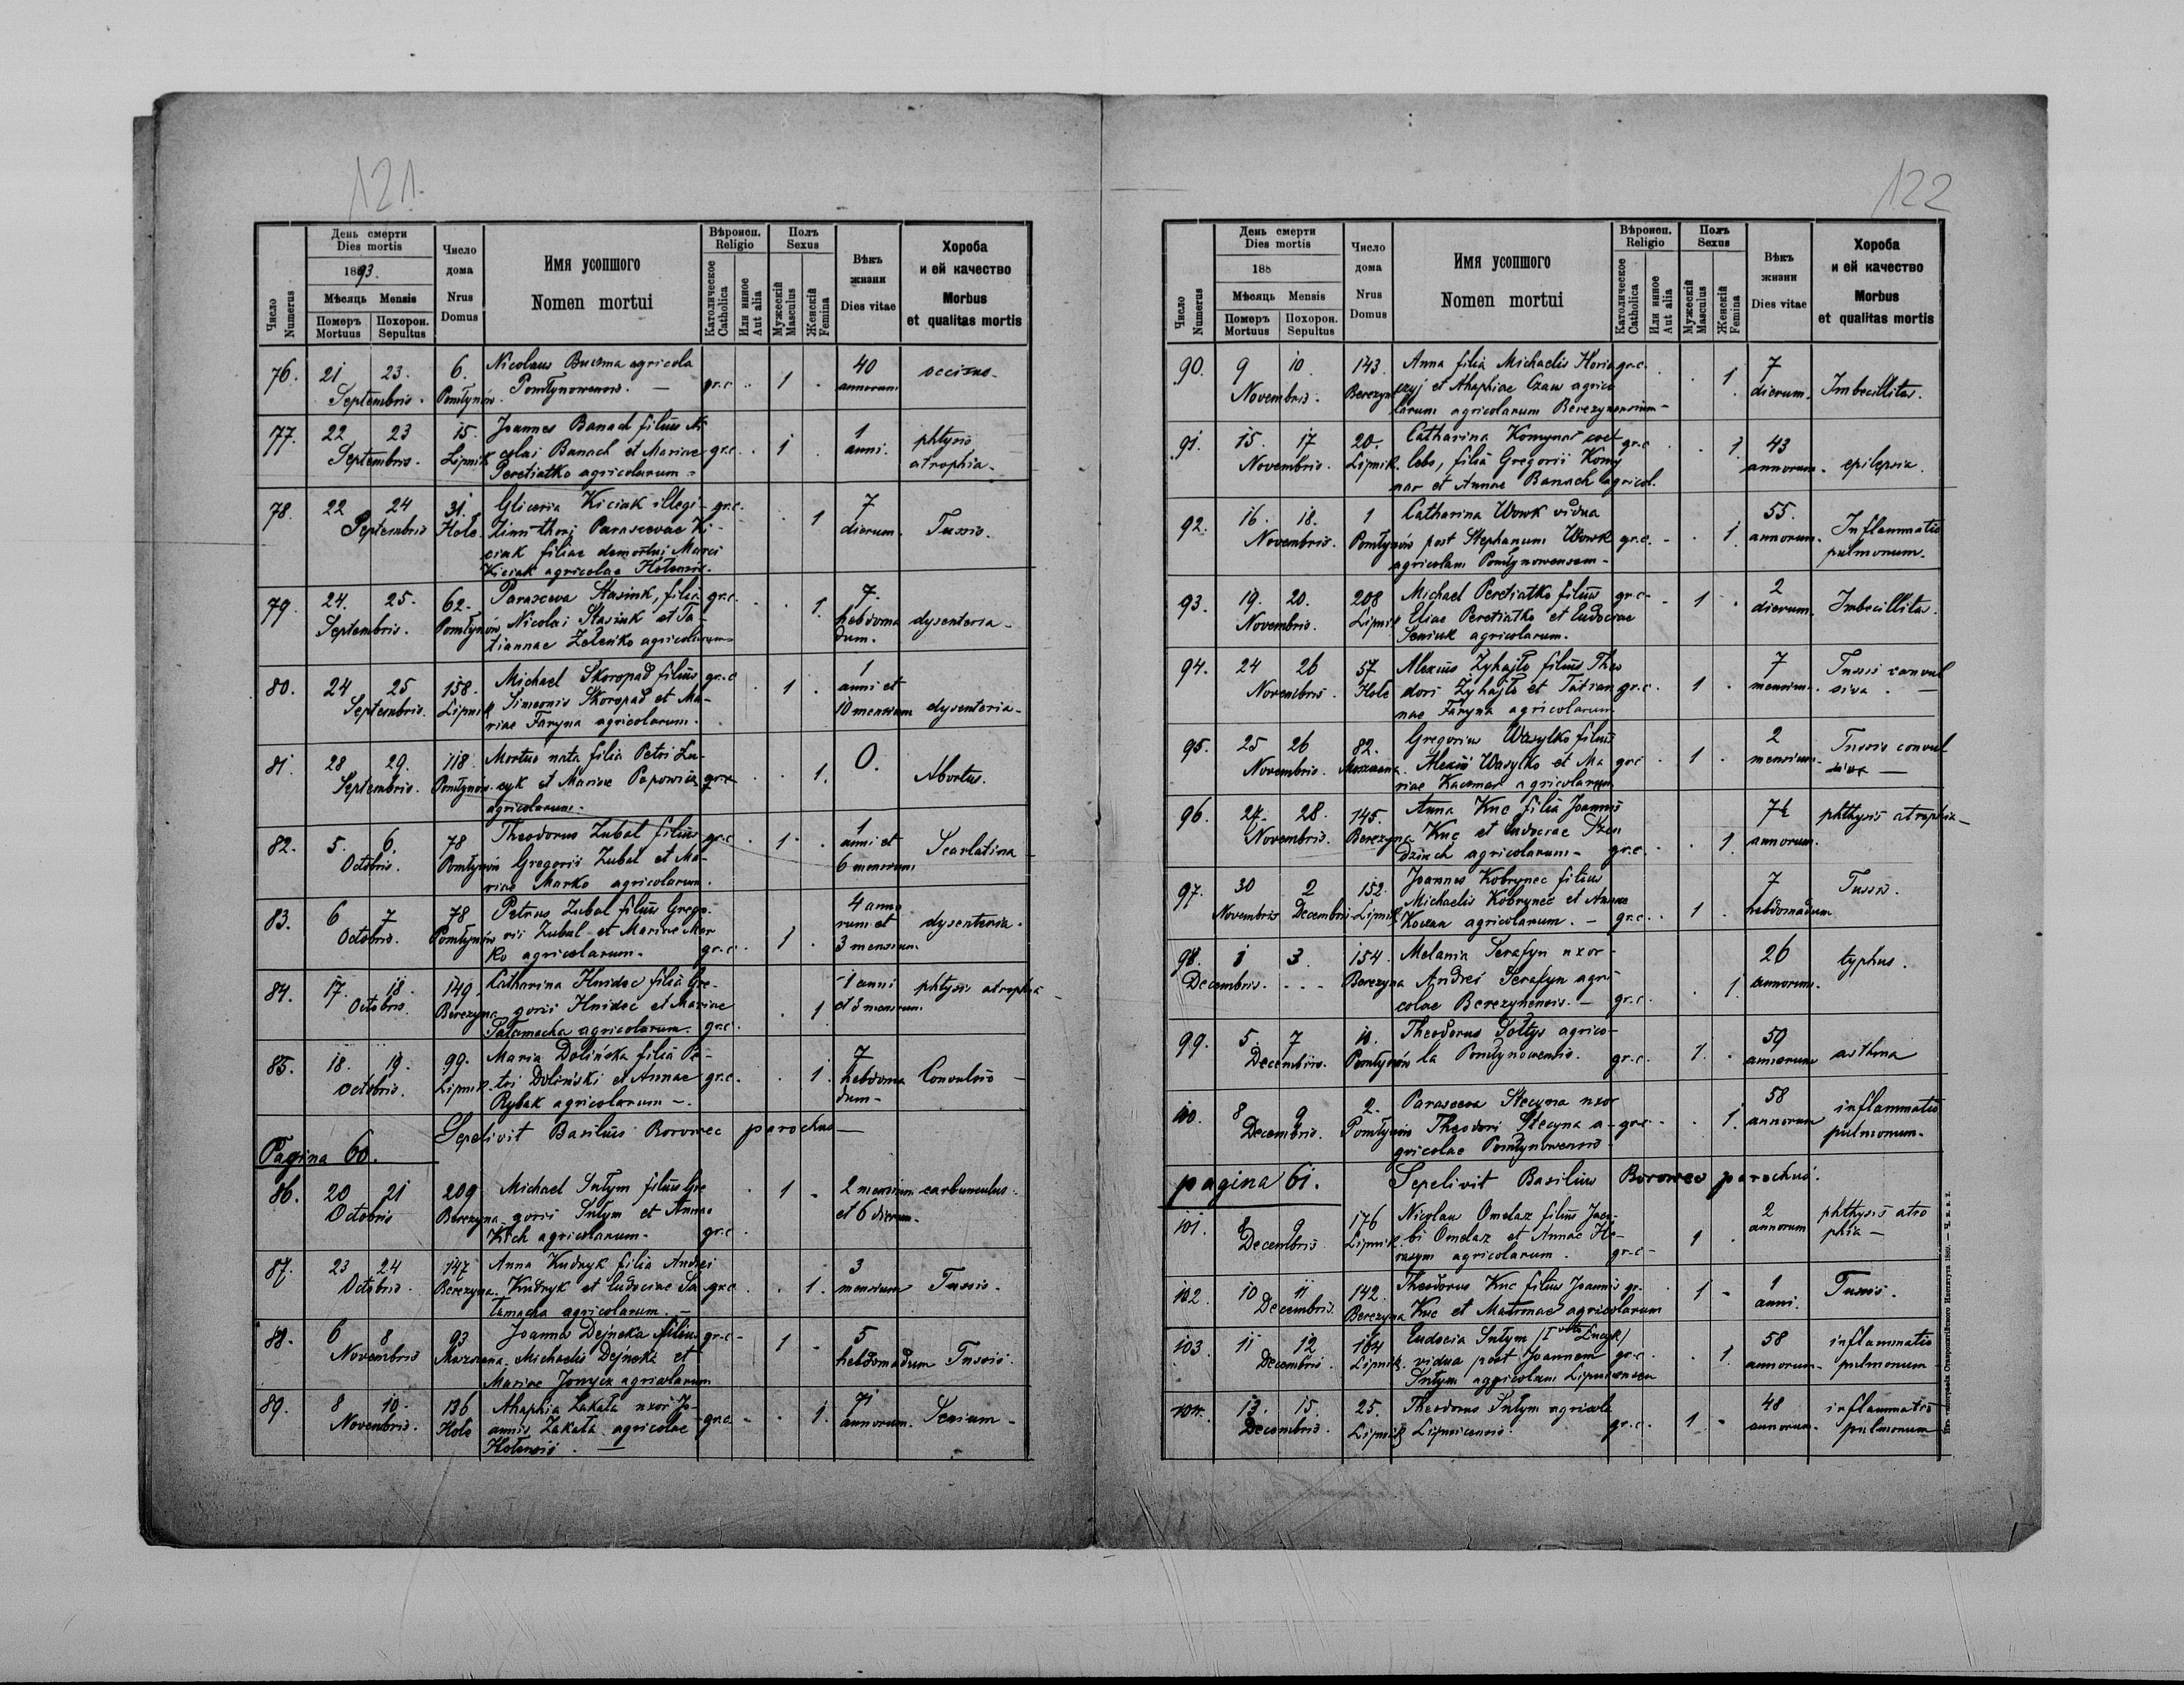 121.
День смерти
Dies mortis
1893.
Мѣсяць Mensis
Померъ Похорон.
Mortuus Sepultus
Число
Numerus
Число
дома
Nrus
Domus
Имя усопшого
Nomen mortui
Вѣроисп.
Religio
Католическое
Catholica
Или инное
Aut alia
Полъ
Sexus
Мужескій
Masculus
Женскій
Femina
Вѣкъ
жизни
Dies vitae
Хороба
и ей качество
Morbus
et qualitas mortis
76. 21 23. 6. Nicolaus agricola 40
Septembris. Pomłynów. Pomłynowensis. — gr.c. 1 annorum
77. 22 23 15. Joannes Banach filius Ni 1 phtysis
Septembris. Lipnik colai Banach et Mariae gr.c. 1 anni. atrophia.
Peretiatko agricolarum
78. 22 24 31. Gliceria Kiciak illegi- gr.c. 7
Septembris Hole. Parascevae Ki- 1 dierum. Tussis.
ciak filiae Marci
Kiciak agricolae Holensis.
79. 24. 25. 62. Parasceva Stasiuk, filia gr.c. 7.
Septembris. Pomłynów Nicolai Stasiuk et Ta- 1. hebdoma dysenteria
tiannae Zelenko agricolarum dum.
80. 24 25 158. Michael Skoropad filius gr.c 1
Septembris. Lipnik Simeonis Skoropad et Ma- 1. anni et
riae Faryna agricolarum. 10 mensium dysenteria
81. 28 29. 118. Mortuo nata filia Petri Lu- 0.
Septembris. Pomłynów. cyk et Mariae Popowicz gr.c 1. Abortus.
agricolarum.
82. 5. 6. 78 Theodorus Zubal filius gr.c 1. 1
Octobris. Pomłynów Gregorii Zubal et Ma- anni et Scarlatina
riae Marko agricolarum. 6 mensium
83. 6 7 78 Petrus Zubal filius Grego- 4 anno
Octobris. Pomłynów rii Zubal et Mariae Mar rum et dysenteria.
ko agricolarum. gr.c. 1. 3 mensium.
84. 17. 18. 149. Catharina Hnidec filia Gre- 1 anni phtysis atrophia
Octobris. Berezyna gorii Hnidec et Mariae 1 et 3 mensium.
Satamacha agricolarum. gr.c.
85. 18. 19. 99. Maria Dolińska filia Pe- 7
Octobris. Lipnik. tri Doliński et Annae gr.c. 1. hebdoma Convulsio
Rybak agricolarum —. dum
Sepelivit Basilius Borowec parochus
Pagina 60.
86. 20 21 209 Michael Sułym filius Gre 1 2 mensium carbunculus.
Octobris Berezyna gorii Sułym et Annae et 6 dierum.
Kich agricolarum. gr.c.
87. 23 24 147 Anna Kudryk filia Andrei 3
Octobris. Berezyna. Kudryk et Eudociae Sa gr.c 1. mensium Tussis.
tamacha agricolarum. —
88. 6 8 93 Joannes Dejneka filius gr.c 1 5
Novembris Michaelis Dejneka et hebdomadum Tussis.
Mariae agricolarum
89. 8 10. 136 Ahaphia Zakała uxor Jo- 71
Novembris. Hole annis Zakała agricolae gr.c. 1. annorum. Senium
Holensis. —
122
День смерти
Dies mortis
188
Мѣсяць Mensis
Померъ Похорон.
Mortuus Sepultus
Число
Numerus
Число
дома
Nrus
Domus
Имя усопшого
Nomen mortui
Вѣроисп.
Religio
Католическое
Catholica
Или инное
Aut alia
Полъ
Sexus
Мужескій
Masculus
Женскій
Femina
Вѣкъ
жизни
Dies vitae
Хороба
и ей качество
Morbus
et qualitas mortis
90. 9 10. 143. Anna filia Michaelis gr.c. 7
Novembris. Berezyna et Ahaphiae agrico 1 dierum. Imbecillitas.
larum agricolarum Berezynensium
91. 15. 17 20. Catharina Komynar coel gr.c 1. 43
Novembris. Lipnik. lebs, filia Gregorii Komy annorum. epilepsia.
nar et Annae Banach agricol.
92. 16. 18. 1 Catharina Wowk vidua 55. Inflammatio
Novembris. Pomłynów post Stephanum Wowk gr.c. 1. annorum. pulmonum.
agricolam Pomłynowensem
93. 19. 20. 208 Michael Peretiatko filius gr.c 1 2
Novembris. Lipnik Eliae Peretiatko et Eudociae dierum. Imbecillitas.
Seniuk agricolarum.
94. 24 26 57 Alexius Zyhajło filius Theo 7 Tussis convul
Novembris. Hole dori Zyhajło et Tatian gr.c. 1 mensium. siva. —
nae Faryna agricolarum
95. 25 26 82. Gregorius Wasylko filius 2 Tussis convul
Novembris. Alexii Wasylko et Ma gr.c 1 mensium. siva —
riae Kaczmar agricolarum
96. 27. 28. 145. Anna Kuc filia Joannis 7½ phthysis atrophia
Novembris. Berezyna Kuc et Eudociae 1. annorum.
agricolarum gr.c.
97. 30 2 152. Joannes Kobrynec filius 7 Tussis.
Novembris Decembris Lipnik Michaelis Kobrynec et Annae 1 hebdomadum
agricolarum. — gr.c.
98. 1 3. 154. Melania Serafyn uxor 26 typhus.
Decembris. Berezyna Andrei Serafyn agri- 1. annorum.
colae Berezynensis. — gr.c.
99. 5. 7 10. Theodorus Sołtys agrico- 59
Decembris. Pomłynów la Pomłynowensis. gr.c. 1. annorum asthma
100. 8 9 2. Parasceva Stecyna uxor 58 inflammatio
Decembris. Pomłynów Theodori Stecyna a- gr.c. 1. annorum pulmonum.
gricolae Pomłynowensis
pagina 61. Sepelivit Basilius Borowec parochus.
101. 8 9 176 Nicolaus Omelaz filius Jaco- 2 phthysis atro
Decembris Lipnik. bi Omelaz et Annae He- 1 annorum phia —
rasym agricolarum. gr.c
102. 10 11 142. Theodorus Kuc filius Joannis gr. 1 1 Tussis.
Decembris. Berezyna Kuc et Matronae agricolarum anni.
103. 11 12 164 Eudocia Sułym /I voto Lucyk/ 58 inflammatio
Decembris. Lipnik. vidua post Joannem gr.c. 1. annorum pulmonum
Sułym agricolam
104. 13. 15. 25. Theodorus Sułym agricola 48 inflammatio
Decembris. Lipnik Lipnicensis. gr.c. 1 annorum. pulmonum